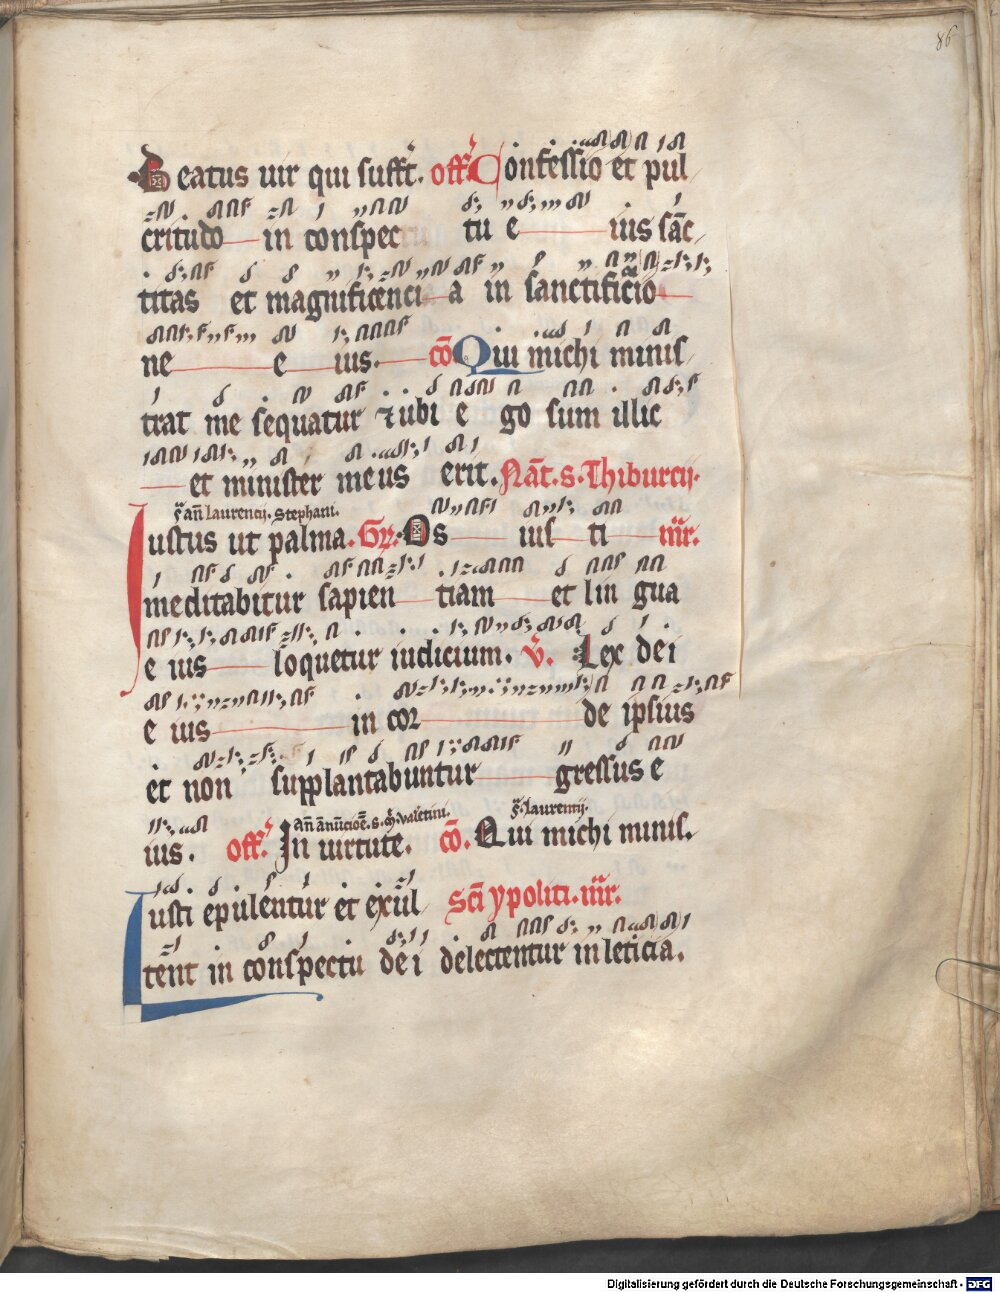 86
Beatus uir qui suffert. off Confessio et pul
critudo in conspectu e ius sanc
titas et magnificenci a in sanctificatio
ne e ius. co Qui michi minis
trat me sequatur et ubi e go sum illic
et minister meus erit. Nat. s. Thiburcij.
laurencij. Stephani.
Iustus ut palma. Gr. Os ius ti mr.
meditabitur sapien tiam et lin gua
e ius loquetur iudicium. v. Lex dei
e ius in cor de ipsius
et non supplantabuntur gressus e
s. laurentij.
ius. off. In uirtute. co. Qui michi minis.
Iusti epulentur et exul Sci ypoliti. mr.
tent in conspectu dei delectentur in leticia.
Digitalisierung gefördert durch die Deutsche Forschungsgemeinschaft - DFG